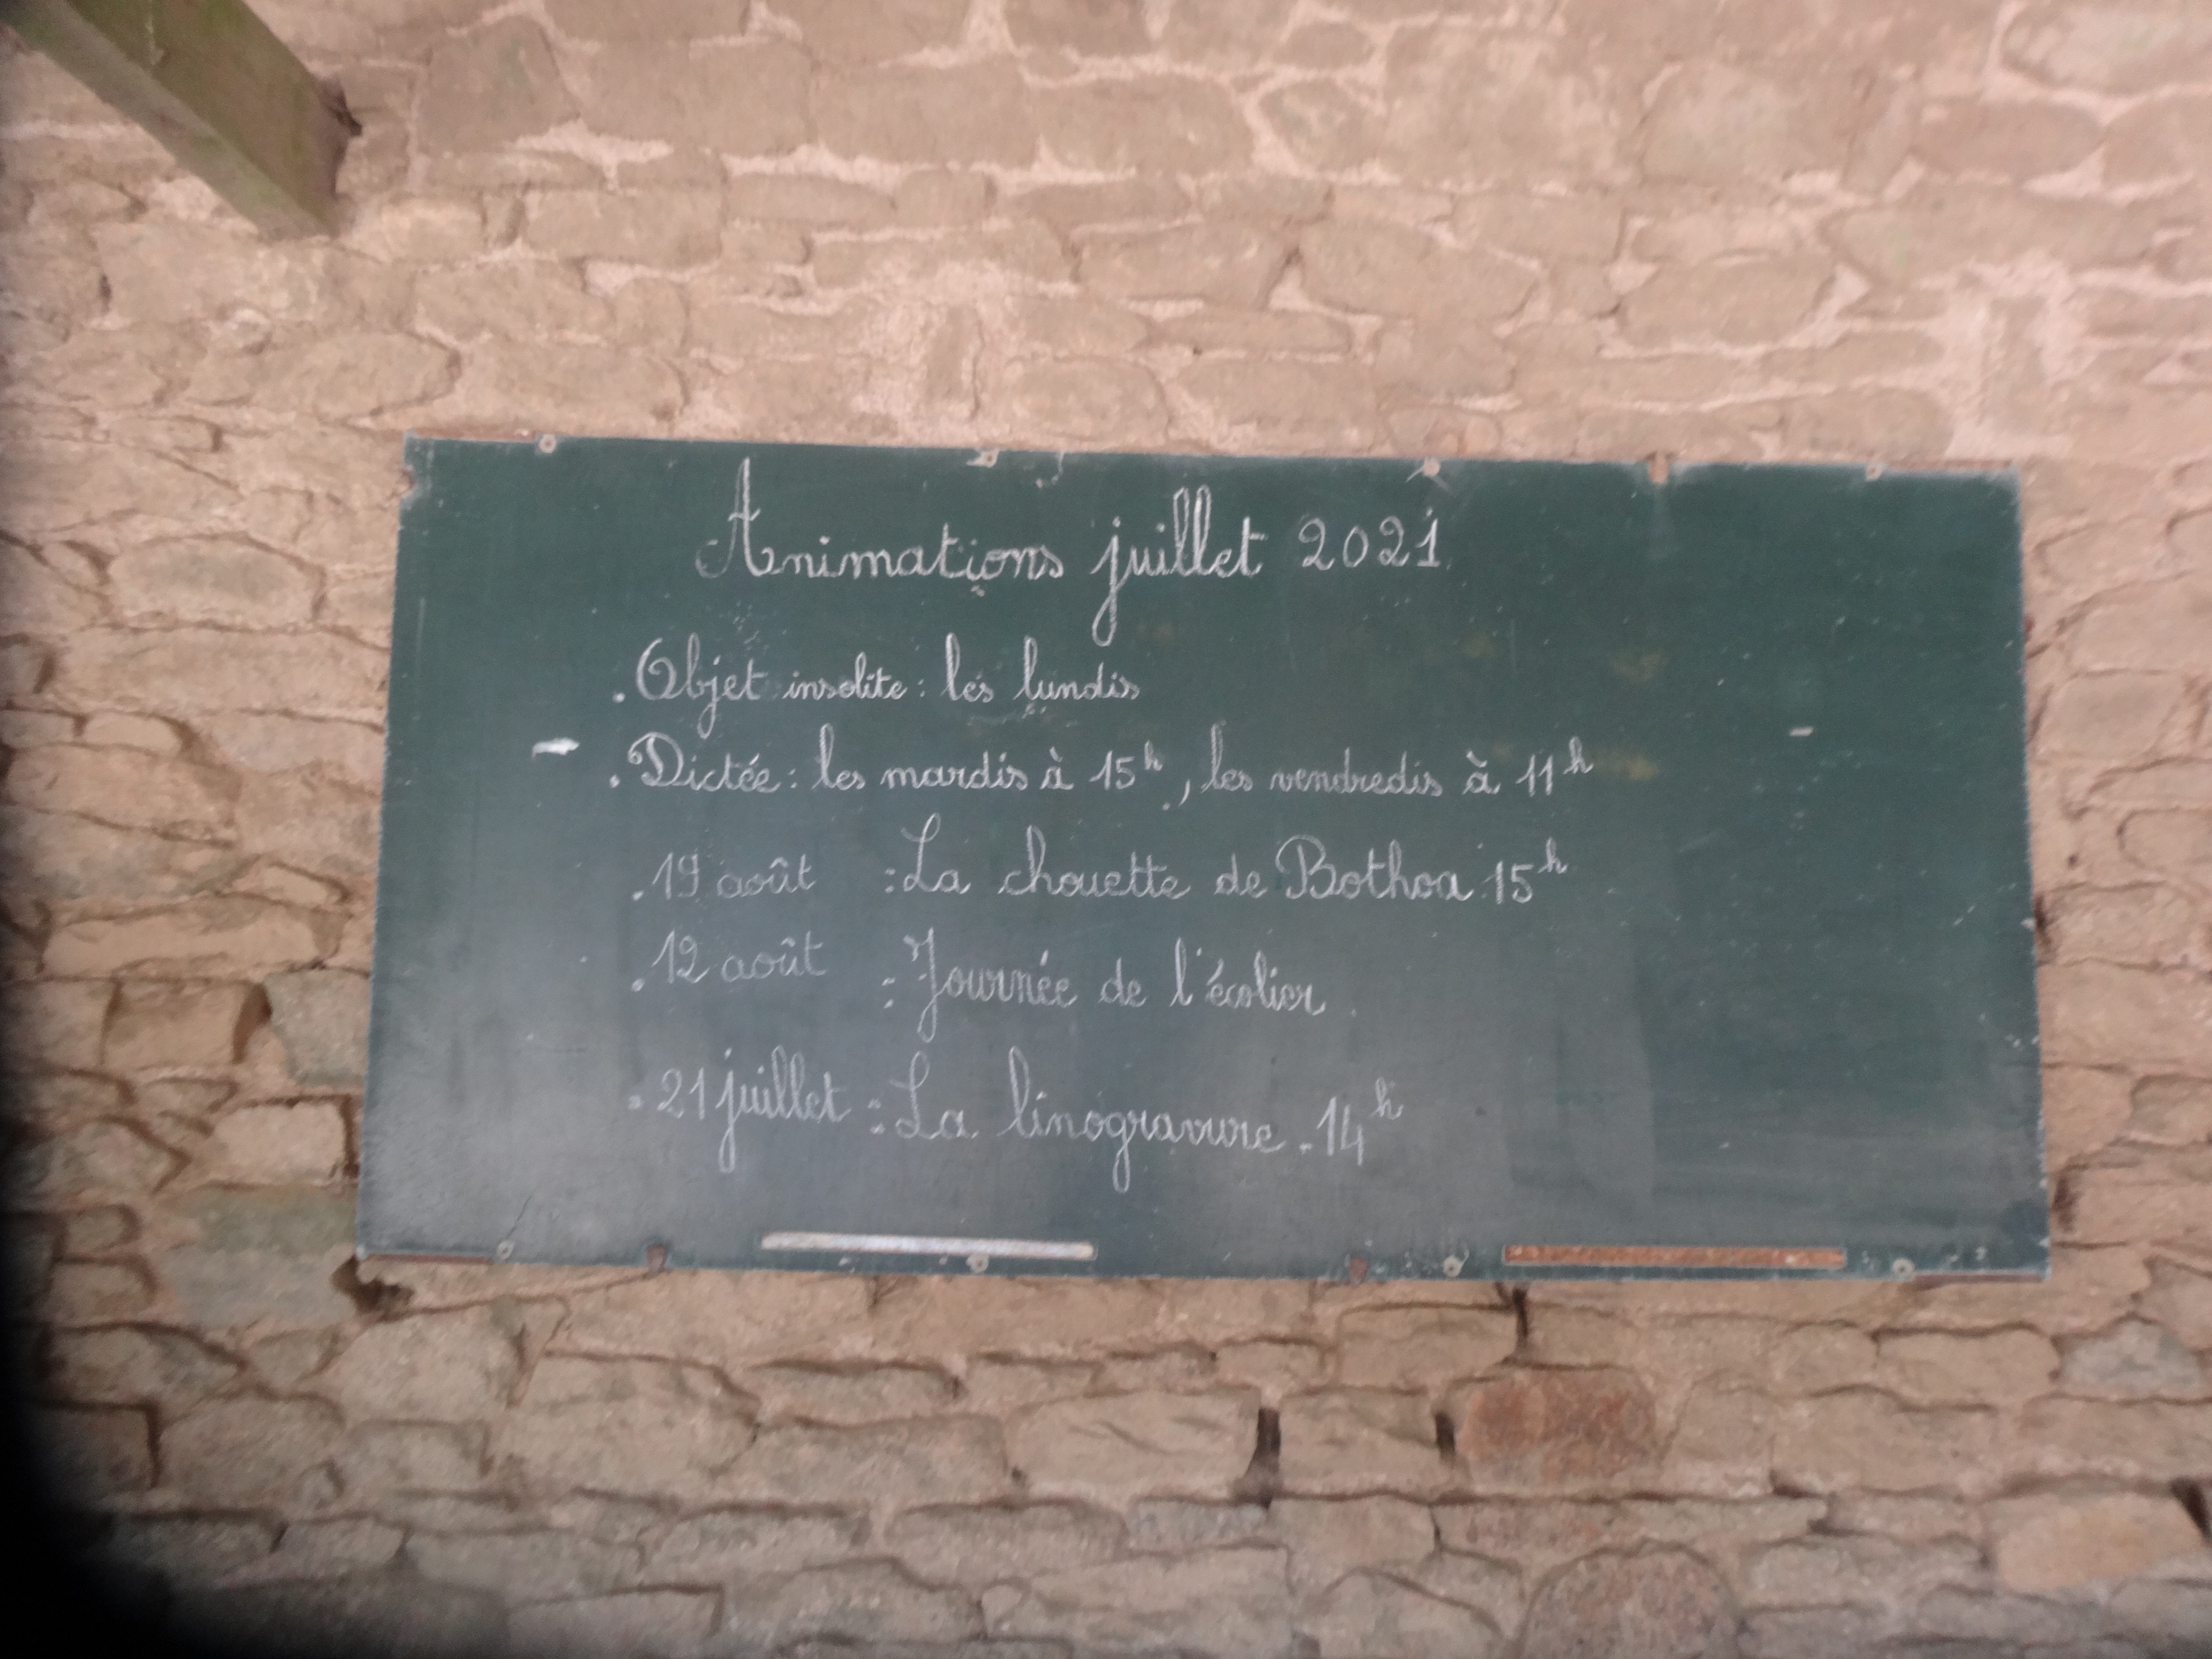 Animations juillet 2021
. Objet insolite : les lundis
. Dictée : les mardis à 15h, les vendredis à 11h
. 19 août : La chouette de Bothoa 15h
. 12 août : Journée de l'écolier.
. 21 juillet : La linogravure . 14h